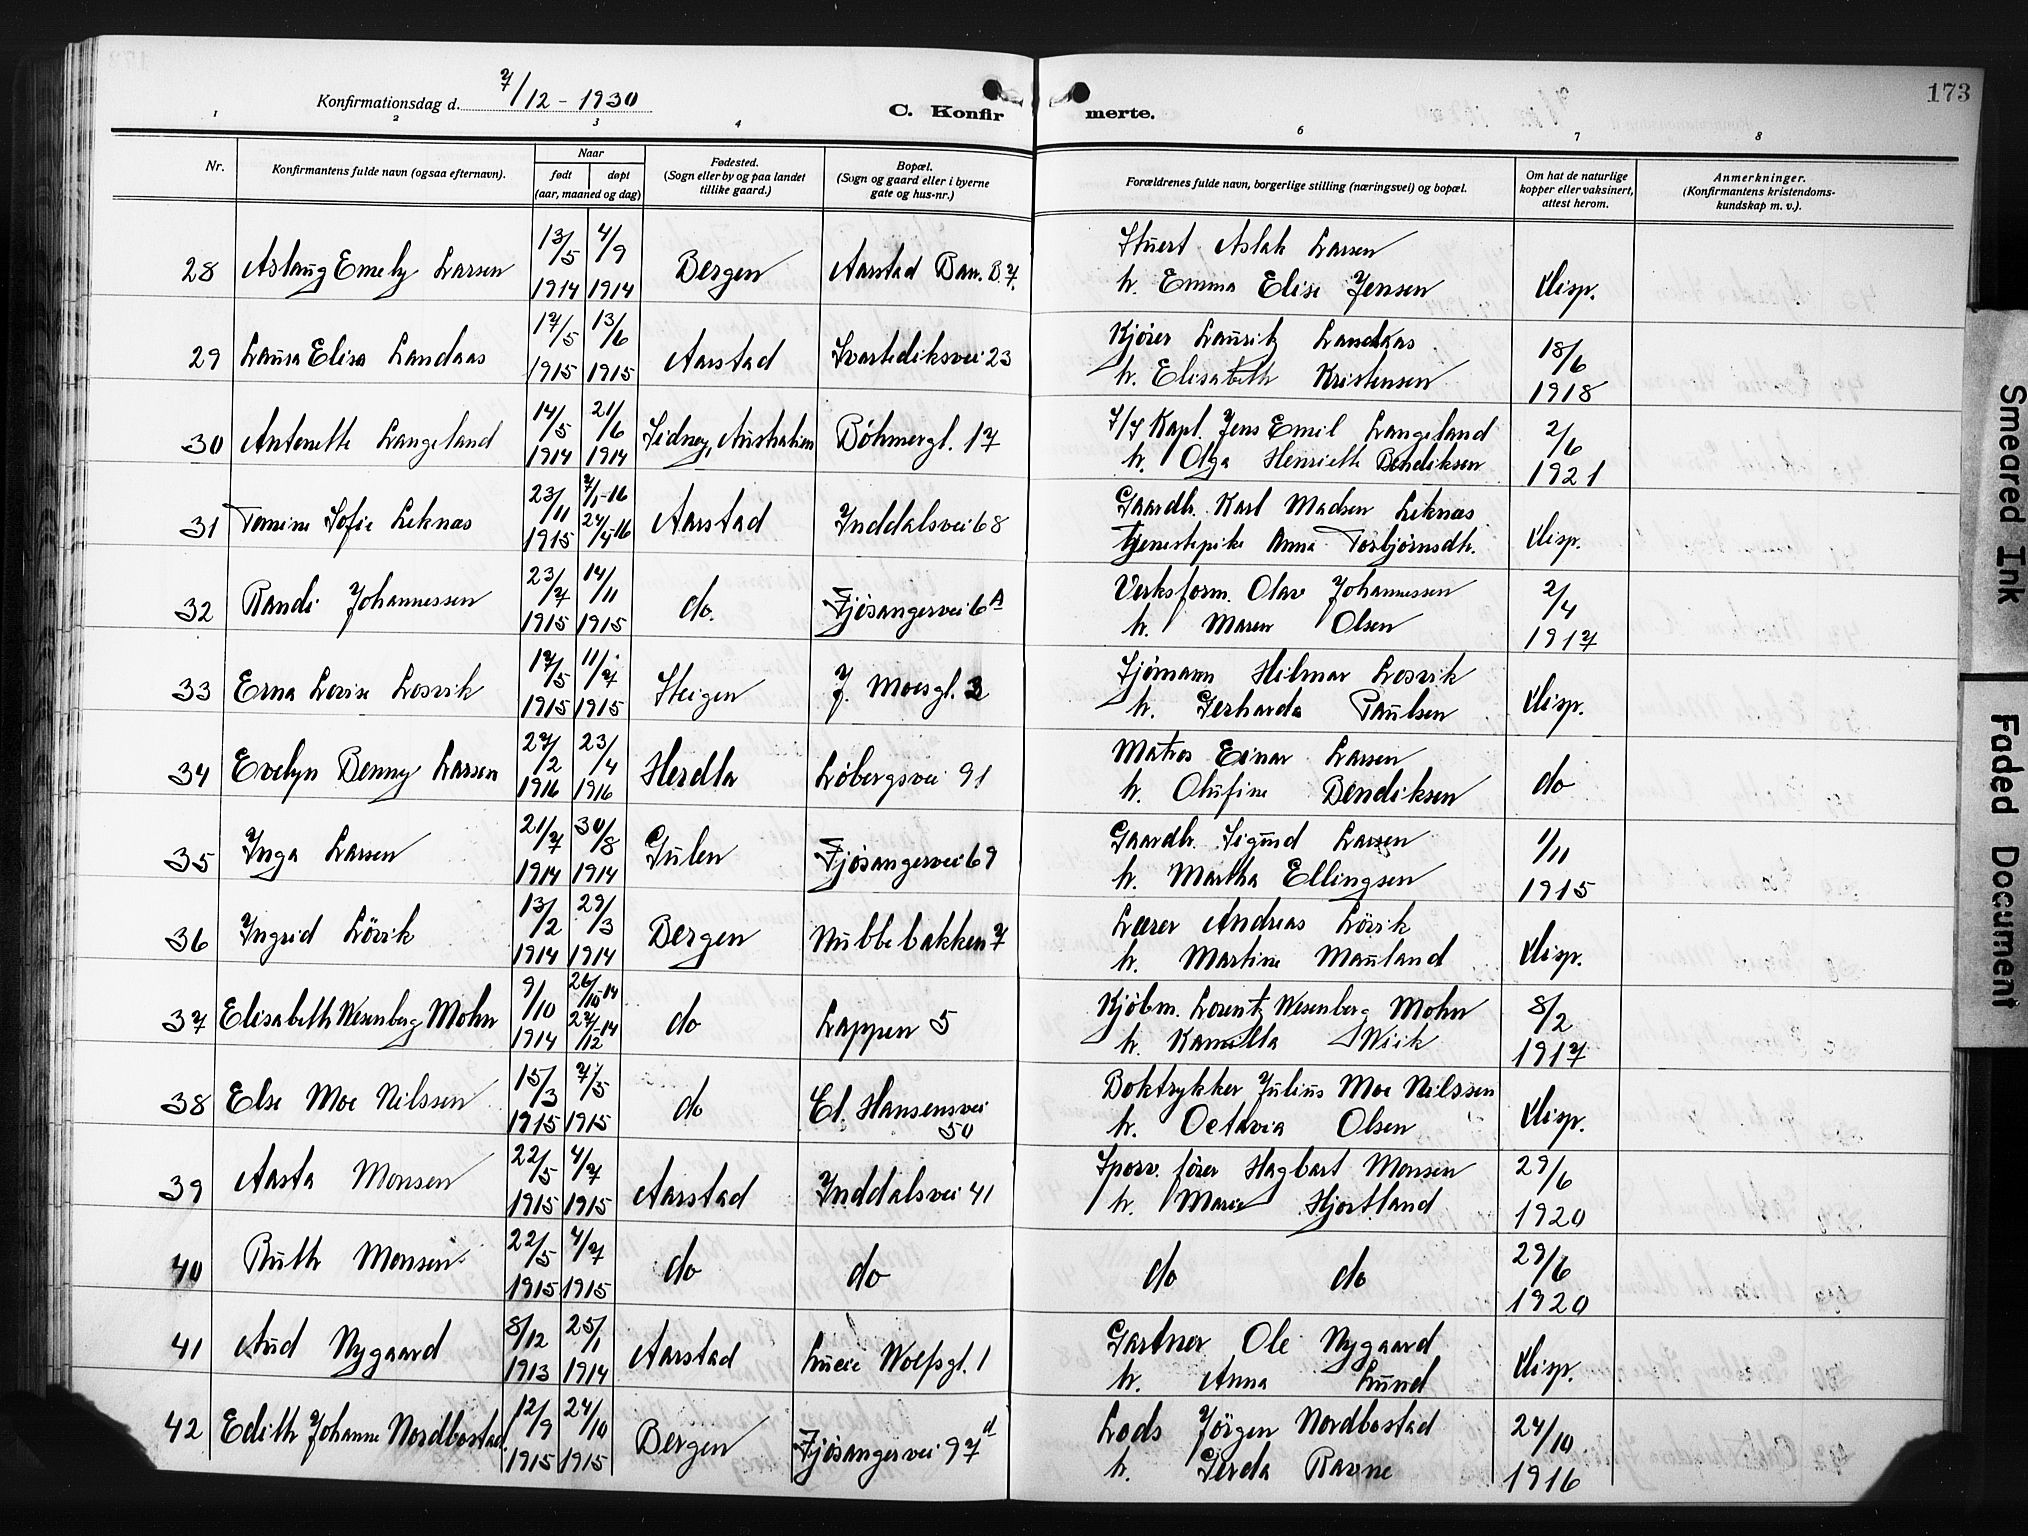 173
Konfirmationsdag d. 7/12 - 1930
C. Konfirmerte.
1 2 3 4 5 6 7 8
Nr.
Konfirmantens fulde navn (ogsaa efternavn).
Naar
født døpt
(aar, maaned og dag)
Fødested.
(Sogn eller by og paa landet
tillike gaard.)
Bopæl.
(Sogn og gaard eller i byerne
gate og hus-nr.)
Forældrenes fulde navn, borgerlige stilling (næringsvei) og bopæl.
Om hat de naturlige
kopper eller vaksinert,
attest herom.
Anmerkninger.
(Konfirmantens kristendoms-
kundskap m. v.).
28 Aslaug Emely Larsen 13/5 1914 4/9 1914 Bergen Aarstad Bar. B. 7. Stuert Aslak Larsen
h. Emma Elise Jensen disp.
29 Laura Elisa Landaas 17/5 1915 13/6 1915 Aarstad Svartediksvei 23 Kjører Lauritz Landaas
h. Elisabeth Kristensen 18/6 1918
30 Antonette Langeland 14/5 1914 21/6 1914 Sidney, Australien Böhmergt. 17 F/F Kapt. Jens Emil Langeland
h. Olga Henriette Bendiksen 2/6 1921
31 Tomine Sofie Leknæs 23/11 1915 7/1-16 24/4-16 Aarstad Inddalsvei 68 Gaardbr. Karl Madsen Leknæs
tjenestepike Anna Torbjørnsdtr. disp.
32 Randi Johannessen 23/7 1915 14/11 1915 do. Fjösangervei 6 A Verksform. Olav Johannessen
h. Maren Olsen 2/4 1917
33 Erna Lovise Losvik 17/5 1915 11/7 1915 Steigen J. Moesgt. 3 Sjømann Hilmar Losvik
h. Gerharda Paulsen disp.
34 Evelyn Benny Larsen 27/2 1916 23/4 1916 Herdla Löbergsvei 91 Matros Einar Larsen
h. Olufine Bendiksen do
35 Inga Larsen 21/7 1914 30/8 1914 Gulen Fjösangervei 69 Gaardbr. Sigurd Larsen
h. Martha Ellingsen 1/11 1915
36 Ingrid Lövik 13/2 1914 29/3 1914 Bergen Nubbebakken 7 Lærer Andreas Lövik
h. Martine Mauland disp.
37 Elisabeth Wesenberg Mohn 9/10 1914 26/10-14 27/12-14 do Lappen 5 Kjöbm. Lorentz Wesenberg Mohn
h. Kamilla Wiik 8/2 1917
38 Else Moe Nilssen 15/3 1915 7/5 1915 do Cl. Hansensvei 50 Boktrykker Julius Moe Nilssen
h. Octavia Olsen disp.
39 Aasta Monsen 22/5 1915 4/7 1915 Aarstad Inddalsvei 41 Sporv. fører Hagbart Monsen
h. Marie Hjortland 29/6 1920
40 Ruth Monsen 22/5 1915 4/7 1915 do do do do 29/6 1920
41 Aud Nygaard 8/12 1913 25/1 1914 Aarstad Lucie Wolfsgt. 1 Gartner Ole Nygaard
h. Anna Lund disp.
42 Edith Johanne Nordbostad 12/9 1915 24/10 1915 Bergen Fjösangervei 97 d Lods Jörgen Nordbostad
h. Gerda Ravne 24/10 1916
Smeared Ink
Faded Document